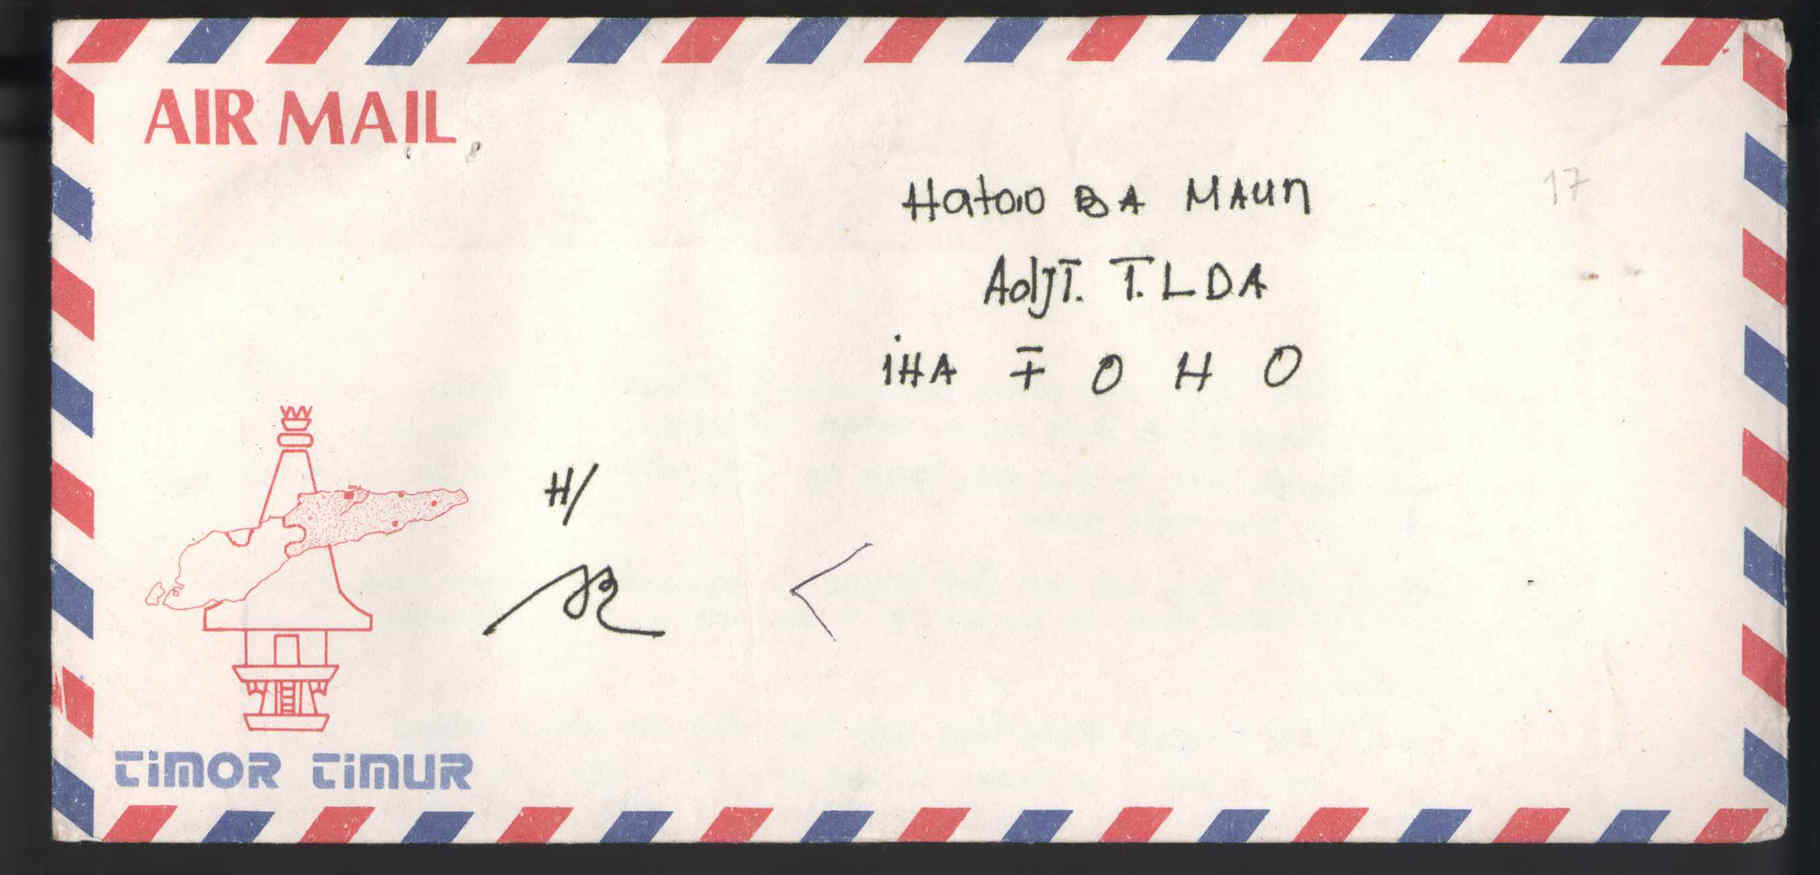 AIR MAIL
Hatoo BA MAUN
17
AdJT. T.LDA
iHA FOHO
H/
TiMOR TiMUR